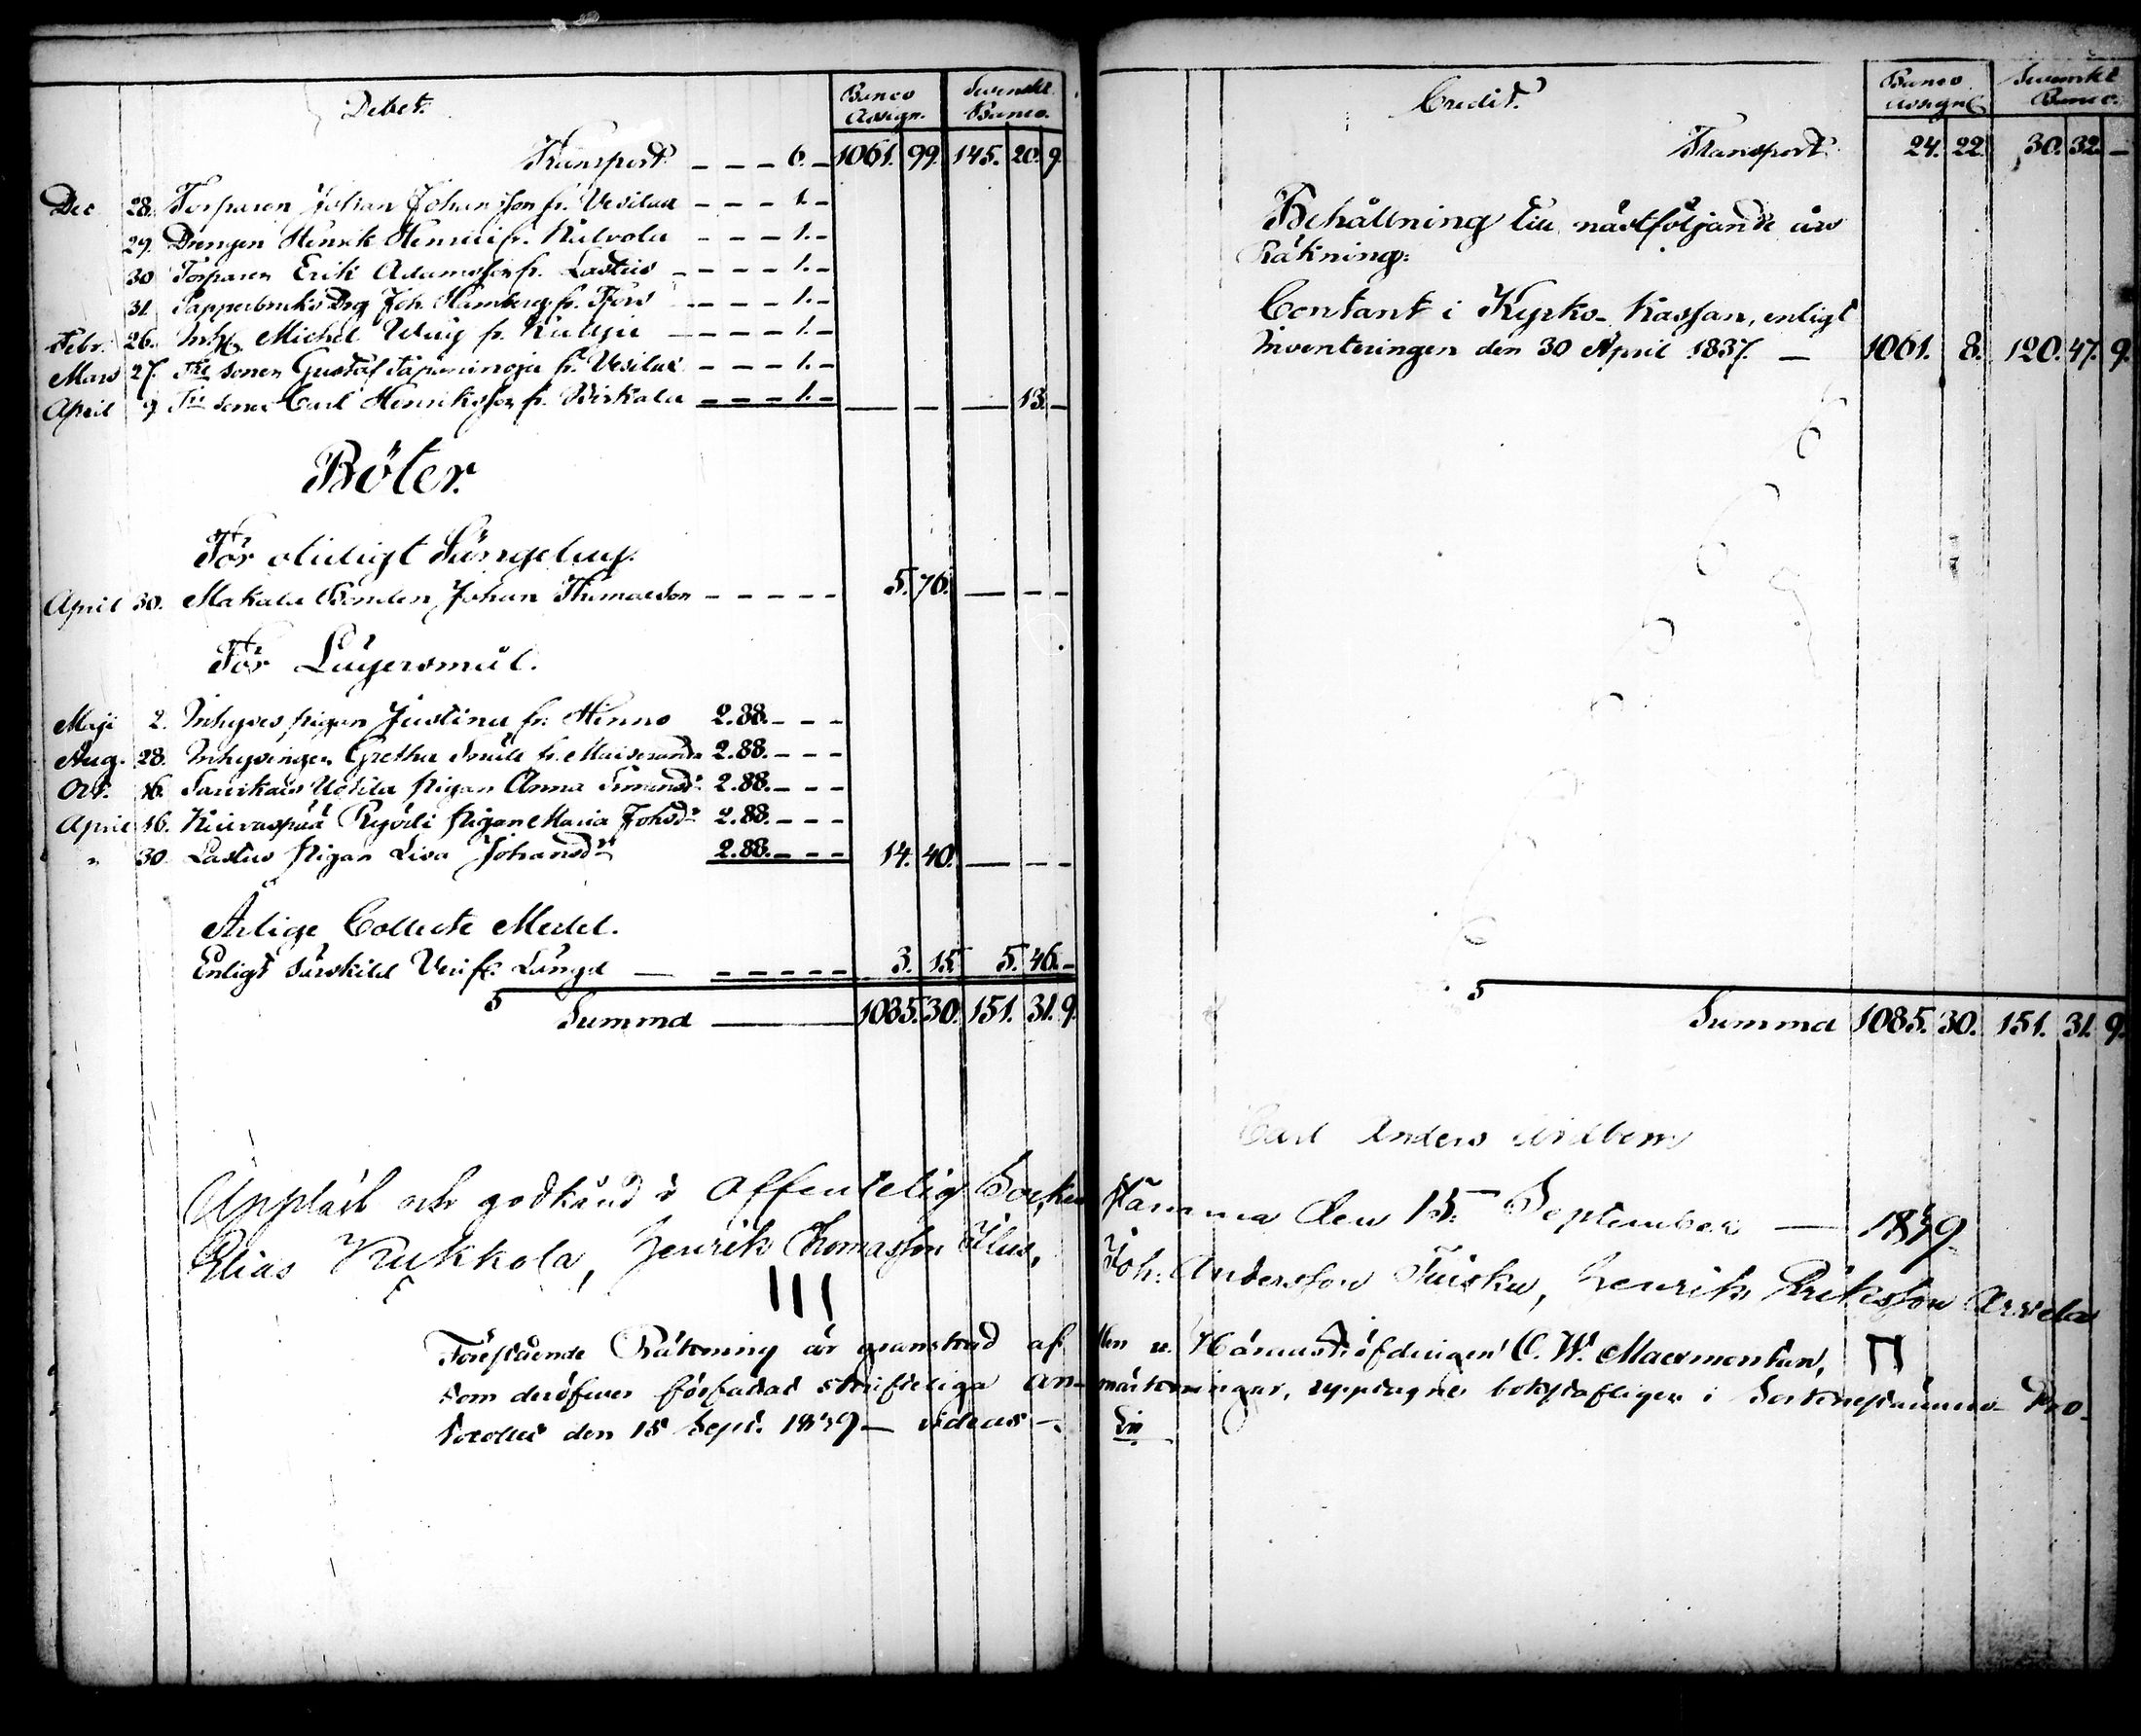 Debet. Banco Assign. Svenskt Banco.
Transport. – – – 6. – 1061. 99. 145. 20. 9.
Dec. 28. Torparen Johan Johansson fr. Vesilax – – – 1. –
29. Drengen Henrik Henrici fr. Kulvola – – – 1. –
30 Torparen Erik Adamsson fr. Lastus – – – – 1. –
31. Pappersbruks Drg Joh. Hamberg fr. Tfors – – – 1. –
Febr. 26. Inh. Michel fr. – – – – 1. –
Mars 27. sonen Gustaf fr. Vesilax – – – 1. –
April 9. sonen Carl Henriksson fr. Birkala – – – 1. – — – — 13. –
Böter.
För olidigt Sängelag.
April 30. Makala Bonden Johan Thomasson – – – – – 5. 76. — – –
För Lägersmål.
Maji 2. Inhyses pigan Justina fr. Henno 2. 88. – – –
Aug. 28. Inhysingen Gretha fr. 2. 88. – – –
Oct. 16. Uotila pigan Anna Simonsdr 2. 88. – – –
April 16. Kiurvaspää Ryödi pigan Maria Johsdr 2. 88. – – –
" 30. Lastus pigan Lisa Johansdr 2. 88. – – – 14. 40. — – –
Årlige Collecte Medel.
Enligt särskild Verif. Längd — – – – – – 3. 15. 5. 46. –
Summa — 1085. 30. 151. 31. 9.
Uppläst och godkänd i offentelig Socken
Elias Kukkola, Henrik Thomasson Ilus,
Förestående Räkning är granskad af
som deröfver författat skrifteliga an-
tocollet den 15 Sept. 1839 — videas –
Credit. Banco Assign. Svenskt Banco.
Transport. 24. 22. 30. 32. –
Behållning till nästföljande års
Räkning:
Contant i Kyrko-Kassan, enligt
Inventeringen den 30 April 1837. — 1061. 8. 120. 47. 9.
Summa 1085. 30. 151. 31. 9.
Carl Anders
stämma den 15 September — 1839.
Joh: Andersson Tuisku, Henrik Eriksson Arvela
Häradshöfdingen C. W.
märkningar, upptagne bokstafligen i Sockenstämmo Pro-